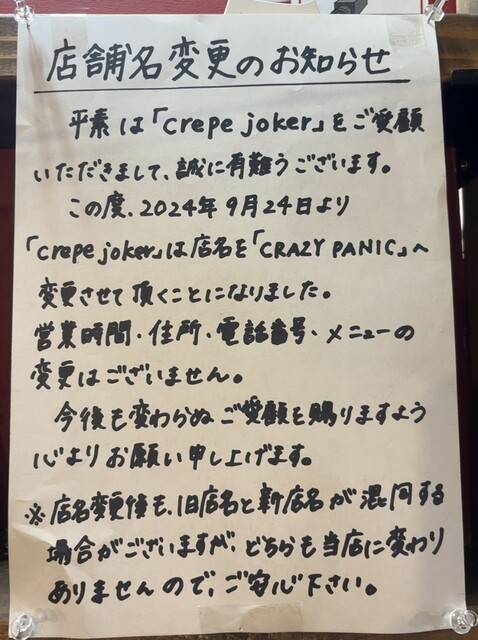 店舗名変更のお知らせ
平素は「crepe joker」をご愛顧
いただきまして、誠に有難うございます。
この度、2024年9月24日より
「crepe joker」は店名を「CRAZY PANIC」へ
変更させて頂くことになりました。
営業時間・住所・電話番号・メニューの
変更はございません。
今後も変わらぬご愛顧を賜りますよう
心よりお願い申し上げます。
※店名変更後も、旧店名と新店名が混同する
場合がございますが、どちらも当店に変わり
ありませんので、ご安心下さい。